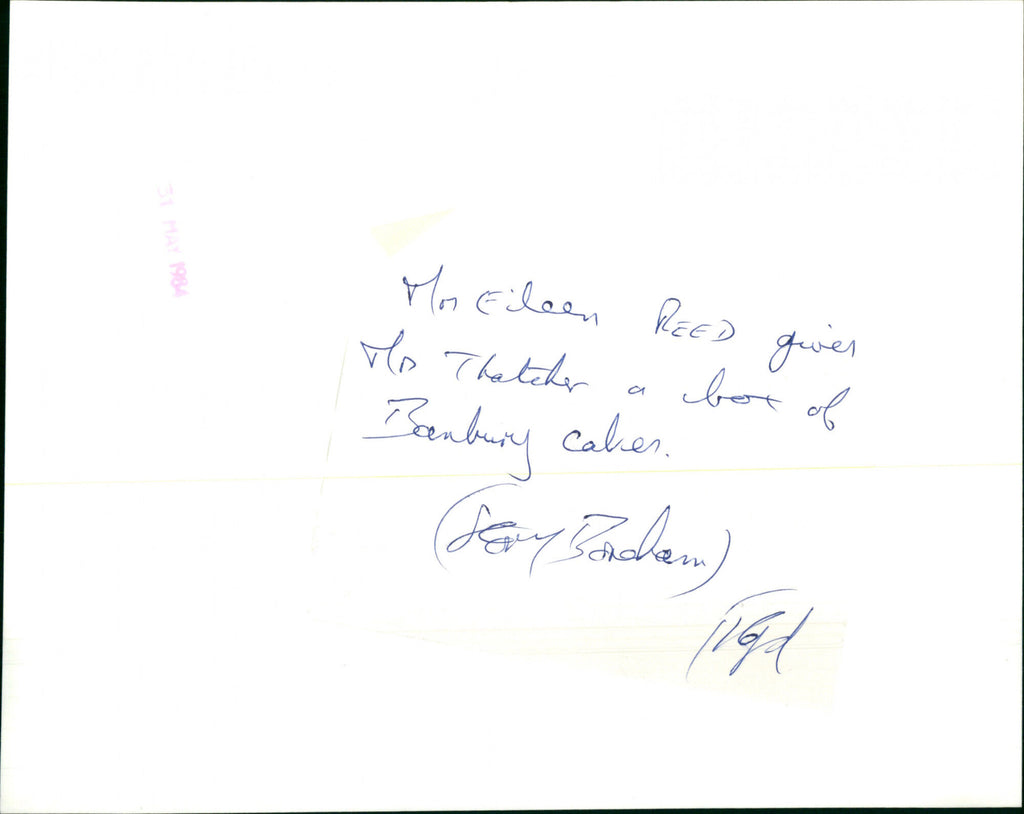 31 MAY 1984
Mrs Eileen REED gives
Mrs Thatcher a box of
Banbury cakes.